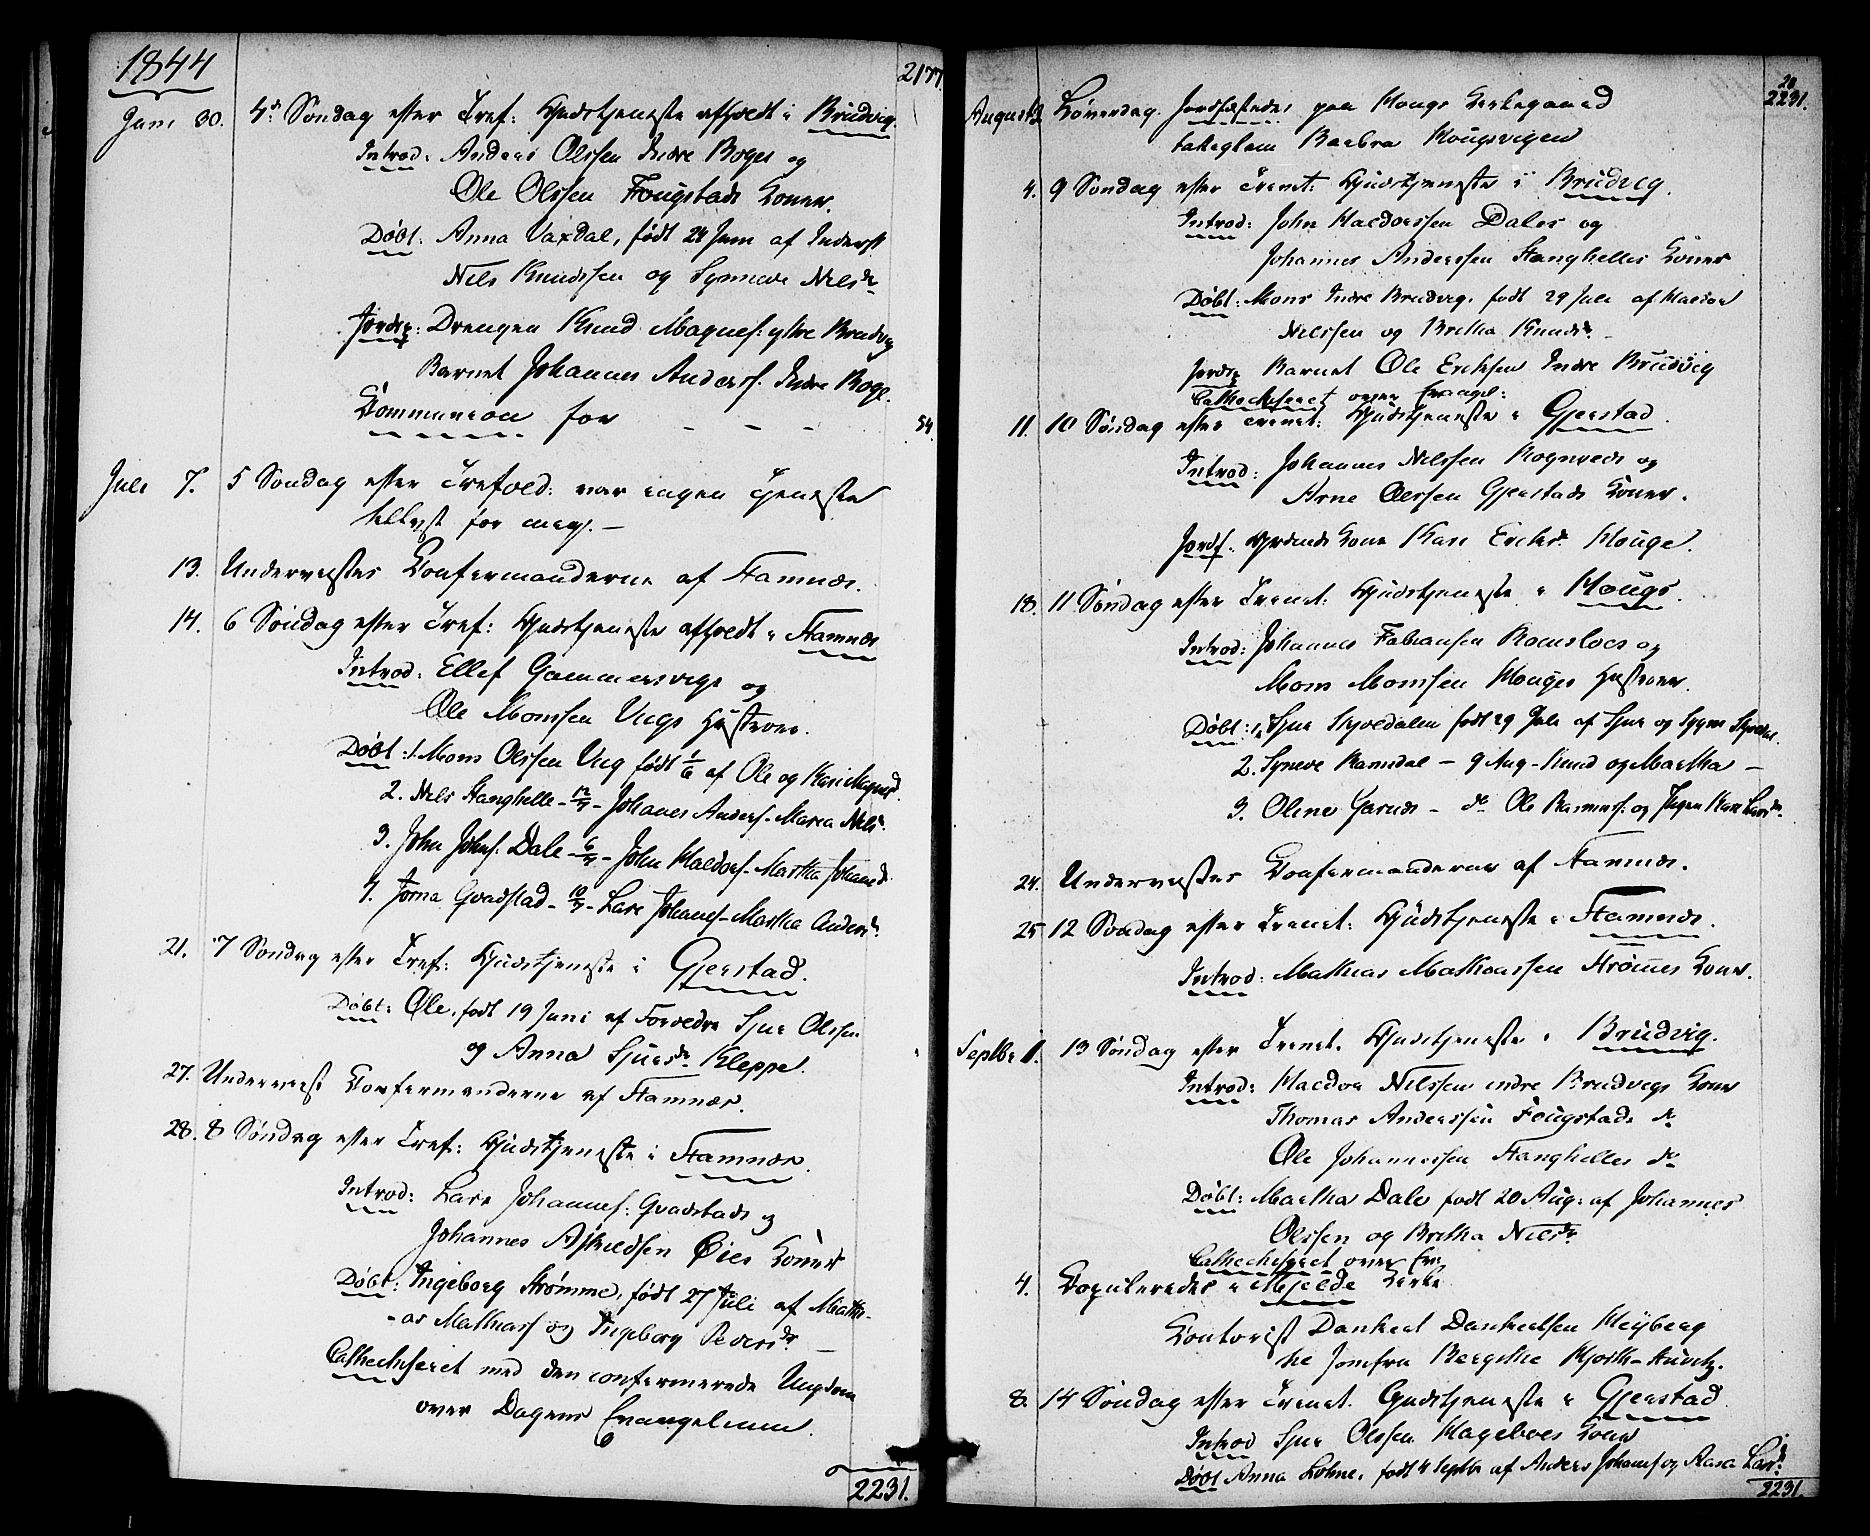 1844
2177
Juni 30. 4de Søndag efter Tref: Gudstjeneste afholdt i Brudvig.
Introd: Anders Olssen Indre Boges og
Ole Olssen Fougstads Koner.
Døbt: Anna Vaxdal, født 24 Juni af Inderst
Nels Knudssen og Synneve Nelsdr
Jordf: Drengen Knud Magnes: ytre Brudvig
Barnet Johannes Anderss. Indre Boge.
Communion for - - - 54.
Juli 7. 5 Søndag efter Trefold: var ingen Tjeneste
tillyst for mig. -
13. Underveistes Confermanderne af Stamnes.
14. 6 Søndag efter Tref: Gudstjeneste afholdt i Stamnes
Introd: Ellef Gammersvigs og
Ole Monssen Vugs Hustroer.
Døbt: 1. Mons Olssen Vug født 1/6 af Ole og Kari Magnesd.
2. Nels Stanghelle - 12/7 - Johanes Anders - Maria Nelsd.
3. John Johns. Dale - 6/7 - John Haldors - Martha Johannesd.
4. Gvadstad - 10/7 - Lars Johanes - Martha Andersdr.
21. 7 Søndag efter Tref: Gudstjeneste i Gjerstad.
Døbt: Ole, født 19 Juni af Forældre Sjur Olssen
og Anna Sjursdr Kleppe.
27. Underveist Confermanderne af Stamnes.
28. 8 Søndag efter Tref: Gudstjeneste i Stamnes.
Introd: Lars Johannes: Gvadstads og
Johannes Øies Koner
Døbt: Ingeborg Strømme, født 27 Juli af Mathi-
-as Mathiass og Ingeborg Pedersdr -
Cathechiseret med den confermerede Ungdom
over Dagens Evangelium.
2231.
2231.
August 3. Løverdag. Jordfæstedes paa Hougs Kirkegaard
Barbra Hougsvigen
4. 9 Søndag efter Trenet: Gudstjeneste i Brudvig.
Introd: John Haldorssen Dales og
Johannes Anderssen Stanghelles Koner
Døbt: Mons Indre Brudvig, født 29 Juli af Haldor
Nelssen og Britha Knudsdr. -
Jordf Barnet Ole Erikssen Indre Brudvig
Catheckiseret over Evangel:
11. 10 Søndag efter Trenet: Gudstjeneste i Gjerstad.
Introd: Johannes Nelssen Rognveds og
Arne Olssen Gjerstads Koner.
Jordf. Kone Kari Eriksdr Houge.
18. 11 Søndag efter Trenet: Gudstjeneste i Hougs.
Introd: Johannes Fabiansen Romsloes og
Mons Monssen Houges Hustroer.
Døbt: 1. Sjur Skjoldalen født 29 Juli af Sjur og Sygni
2. Syneve Ramsdal - 9 Aug - Knud og Martha -
3. Olene Garnes - do Ole Rasmuss: og Kari Larsdr
24. Underveistes Confermanderne af Stamnes.
25 12 Søndag efter Trenet: Gudstjeneste i Stamnes.
Introd: Mathias Mathiassen Strømes Kone.
Septbr 1. 13 Søndag efter Trenet. Gudstjeneste i Brudvig.
Introd: Haldor Nelssen indre Brudvigs Kone
Thomas Anderssen Fougstads do
Ole Johannessen Stanghelles do
Døbt: Martha Dale født 20 Aug: af Johannes
Olssen og Britha Nelsdr
Catheckiseret over Ev:
4. Copuleredes i Mjelde Kirke
Contorist Dankert Dankertsen Heÿberg
til Jomfru Bergithe
8. 14 Søndag efter Trenet. Gudstjeneste i Gjerstad.
Introd Sjur Olssen Hageboes Kone
Døbt Anna Lohne, født 4 Septbr af Anders Johanes og Larsdr
2231.